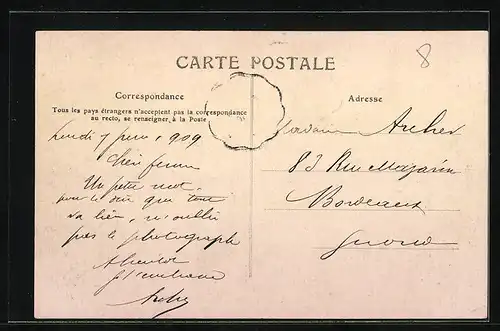 CARTE POSTALE
8
Correspondance
Tous les pays étrangers n'acceptent pas la correspondance
au recto, se renseigner à la Poste
Lundi 7 juin 1909
Un petit mot,
pour te dire que tout
va bien, n'oublie
pas le photographe
A bientôt
Je t'embrasse
Adresse
Madame Archer
83 Rue Mazarin
Bordeaux
Gironde